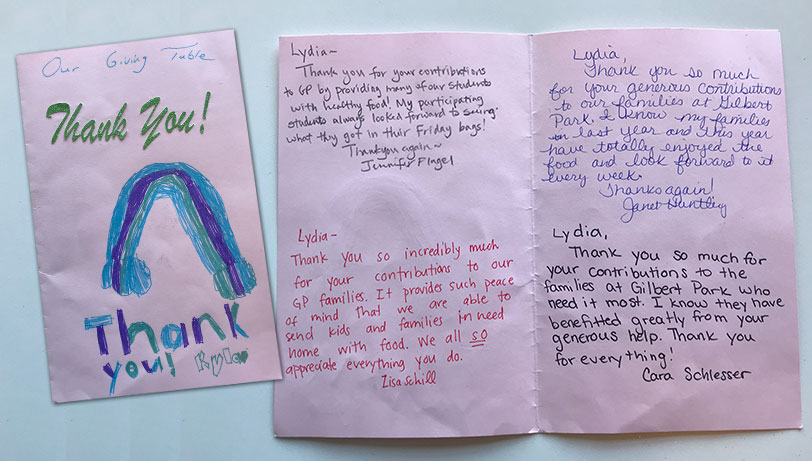 Our Giving Table
Thank You!
Thank
you! Kyler
Lydia~
Thank you for your contributions
to GP by providing many of our students
with healthy food! My participating
students always looked forward to seeing
what they got in their Friday bags!
Thank you again~
Jennifer Fingel
Lydia~
Thank you so incredibly much
for your contributions to our
GP families. It provides such peace
of mind that we are able to
send kids and families in need
home with food. We all so
appreciate everything you do.
Lisa Schill
Lydia,
Thank you so much
for your generous contributions
to our families at Gilbert
Park. I know my families
in last year and this year
have totally enjoyed the
food and look forward to it
every week.
Thanks again!
Janet Huntley
Lydia,
Thank you so much for
your contributions to the
families at Gilbert Park who
need it most. I know they have
benefitted greatly from your
generous help. Thank you
for everything!
Cara Schlesser